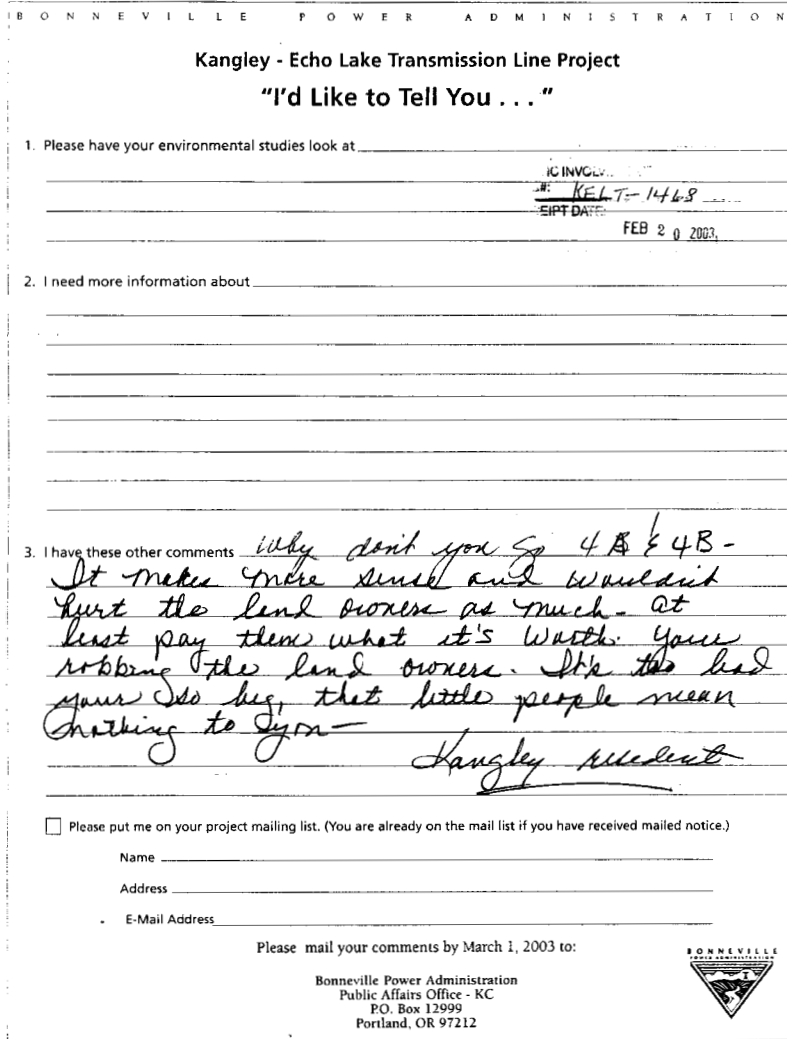 BONNEVILLE POWER ADMINISTRATION
Kangley - Echo Lake Transmission Line Project
“I’d Like to Tell You . . .”
1. Please have your environmental studies look at
IC INVOLV
#: KELT-1468
EIPT DATE:
FEB 20 2003
2. I need more information about
3. I have these other comments Why don't you go 4 & 4B -
It makes more sense and wouldn't
hurt the land owners as much - at
least pay them what it's worth. Your
robbing the land owners. It's too bad
your so big, that little people mean
nothing to you -
Kangley resedent
Please put me on your project mailing list. (You are already on the mail list if you have received mailed notice.)
Name
Address
E-Mail Address
Please mail your comments by March 1, 2003 to:
Bonneville Power Administration
Public Affairs Office - KC
P.O. Box 12999
Portland, OR 97212
BONNEVILLE
POWER ADMINISTRATION